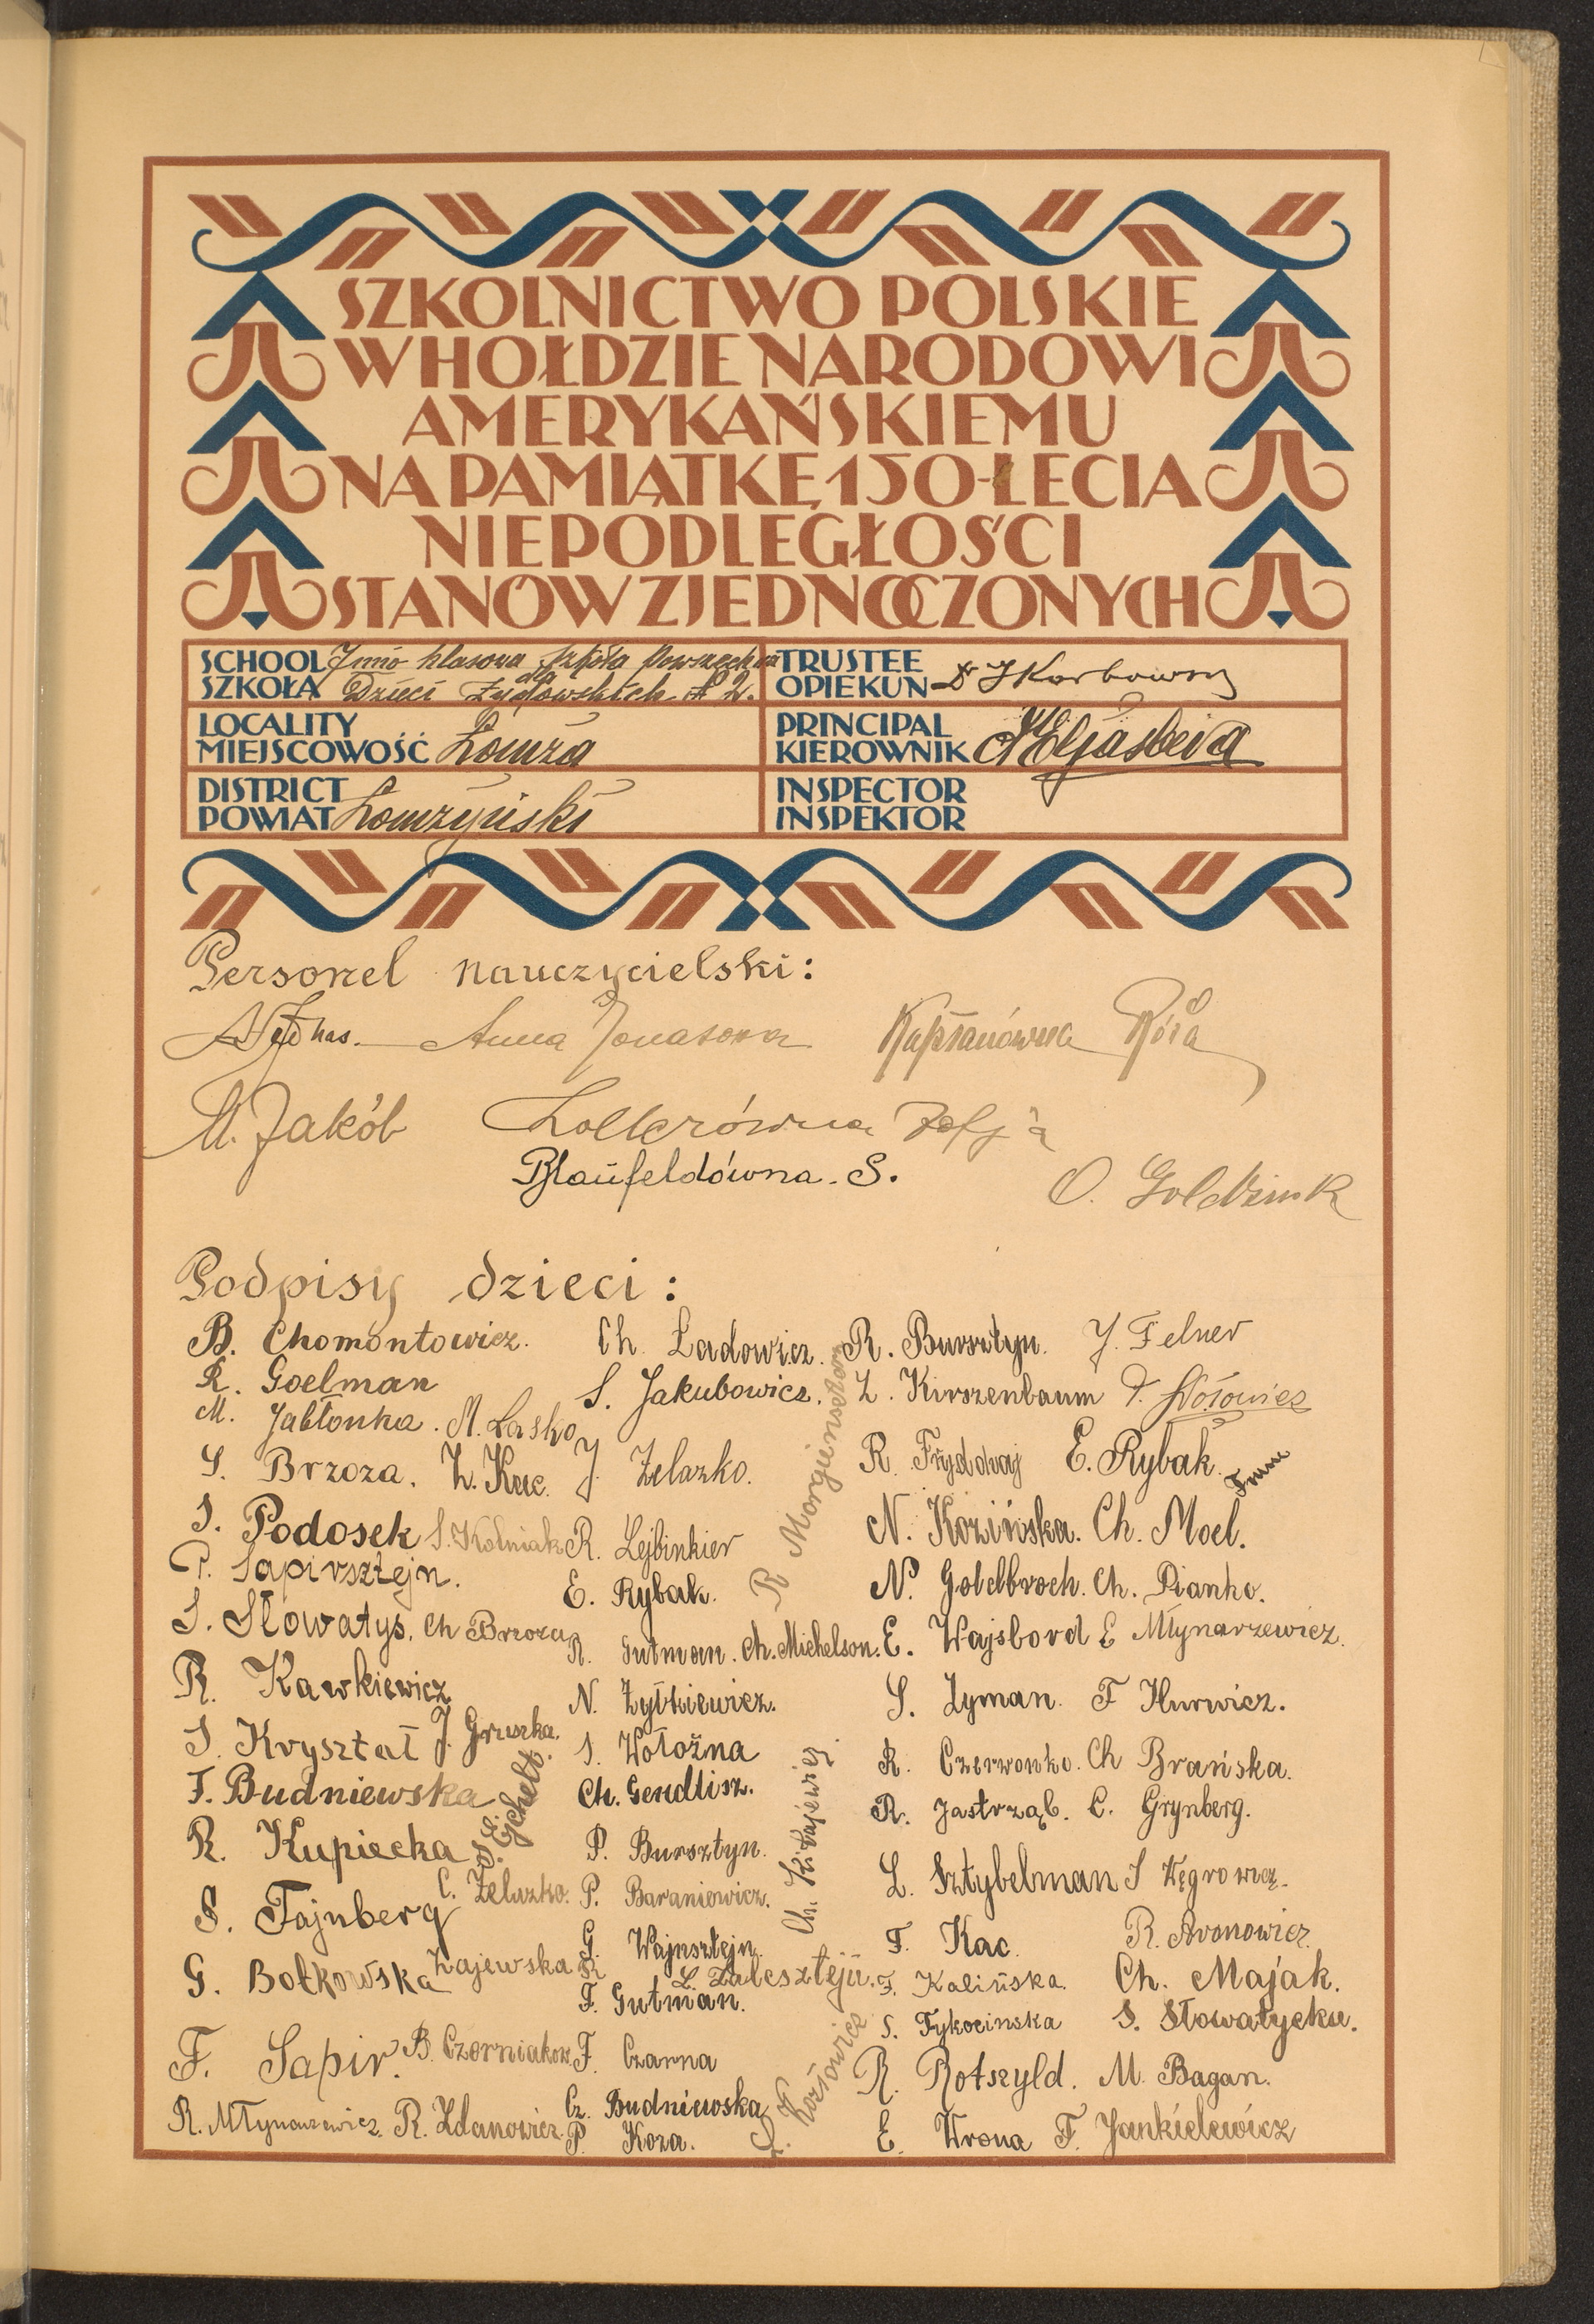 SZKOLNICTWO POLSKIE
W HOŁDZIE NARODOWI
AMERYKAŃSKIEMU
NA PAMIĄTKĘ 150-LECIA
NIEPODLEGŁOŚCI
STANÓW ZJEDNOCZONYCH
SCHOOL
SZKOŁA
7mio klasowa Szkoła Powszechna
dla
Dzieci Żydowskich № 2.
TRUSTEE
OPIEKUN
Dr J Karbowny
LOCALITY
MIEJSCOWOŚĆ
Łomża
PRINCIPAL
KIEROWNIK
DISTRICT
POWIAT
Łomżyński
INSPECTOR
INSPEKTOR
Personel nauczycielski:
Anna Jonasowa Kapłanówna Róża
M. Jakób Zofja
Blaufeldówna. S.
O.
Podpisy dzieci:
B. Chomontowicz. Ch. Ladowicz. R. Bursztyn. J. Felner
R. Goelman S. Jakubowicz. Z. Kirszenbaum
M. Jabłonka. M. Lasko
S. Brzoza. Z. Kac. J. Żelazko. R. Frydowaj E. Rybak
R Morgiensztern
S. Podosek S. Kolniak R. Lejbinkier N. Kozińska. Ch. Moel.
P. Sapirsztejn. E. Rybak. N. Goldbroch. Ch. Pianko.
S. Słowatys. Ch Brzoza R. Gutman. Ch. Michelson. E. Wajsbord E Młynarzewicz.
R. Kawkiewicz N. Żyłkiewicz. S. Zyman. F Hurwicz.
S. Kryształ J. Gruszka. S. Wołożna R. Czerwonko. Ch Brańska.
F. Budniewska S. Ejchelb. Ch. Gendlisz. R. Jastrząb. C. Grynberg.
R. Kupiecka P. Bursztyn. Ch. Kitajewicz L. Sztybelman J Węgrowicz.
S. Fajnberg C. Żelazko. P. Baraniewicz. F. Kac. R. Aronowicz.
G. Wajnsztejn.
G. Botkowska Zajewska R L. Zalcsztejn. F. Kalińska. Ch. Majak.
F. Gutman. S. Tykocinska S. Słowatycka.
F. Sapir. B. Czerniakow. F. Czarna R. Rotszyld. M. Bagan.
R. Młynarzewicz. R. Zdanowicz. Cz. Budniewska
P. Koza. L. Kozłowicz E. Wrona F. Jankielewicz